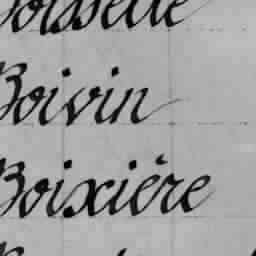 Boisselle
Boivin
Boixière